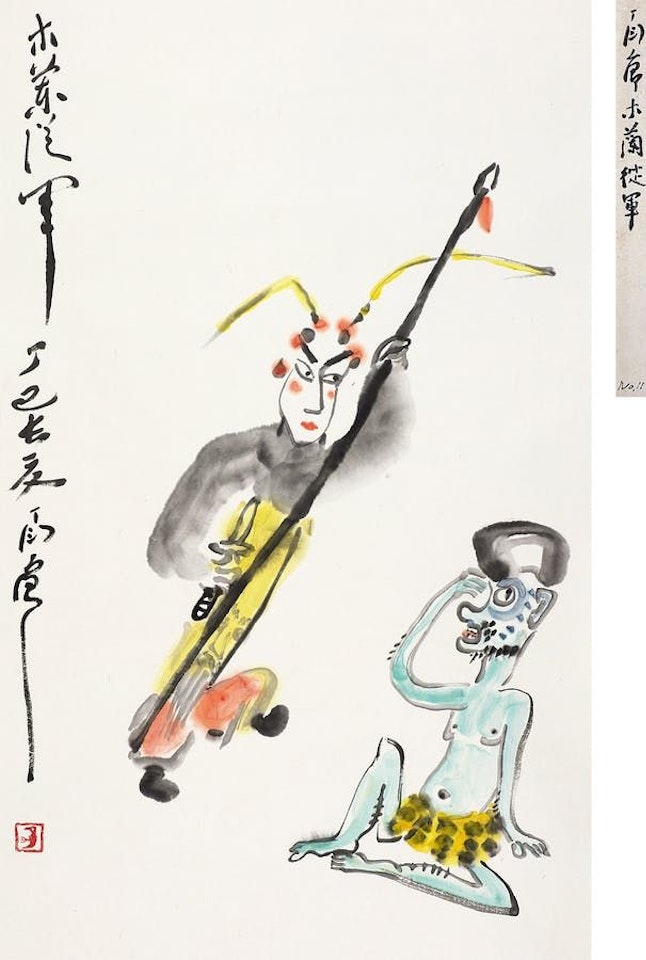 木蘭從軍 丁巳長夏 丁衍庸
丁衍庸木蘭從軍
No.11